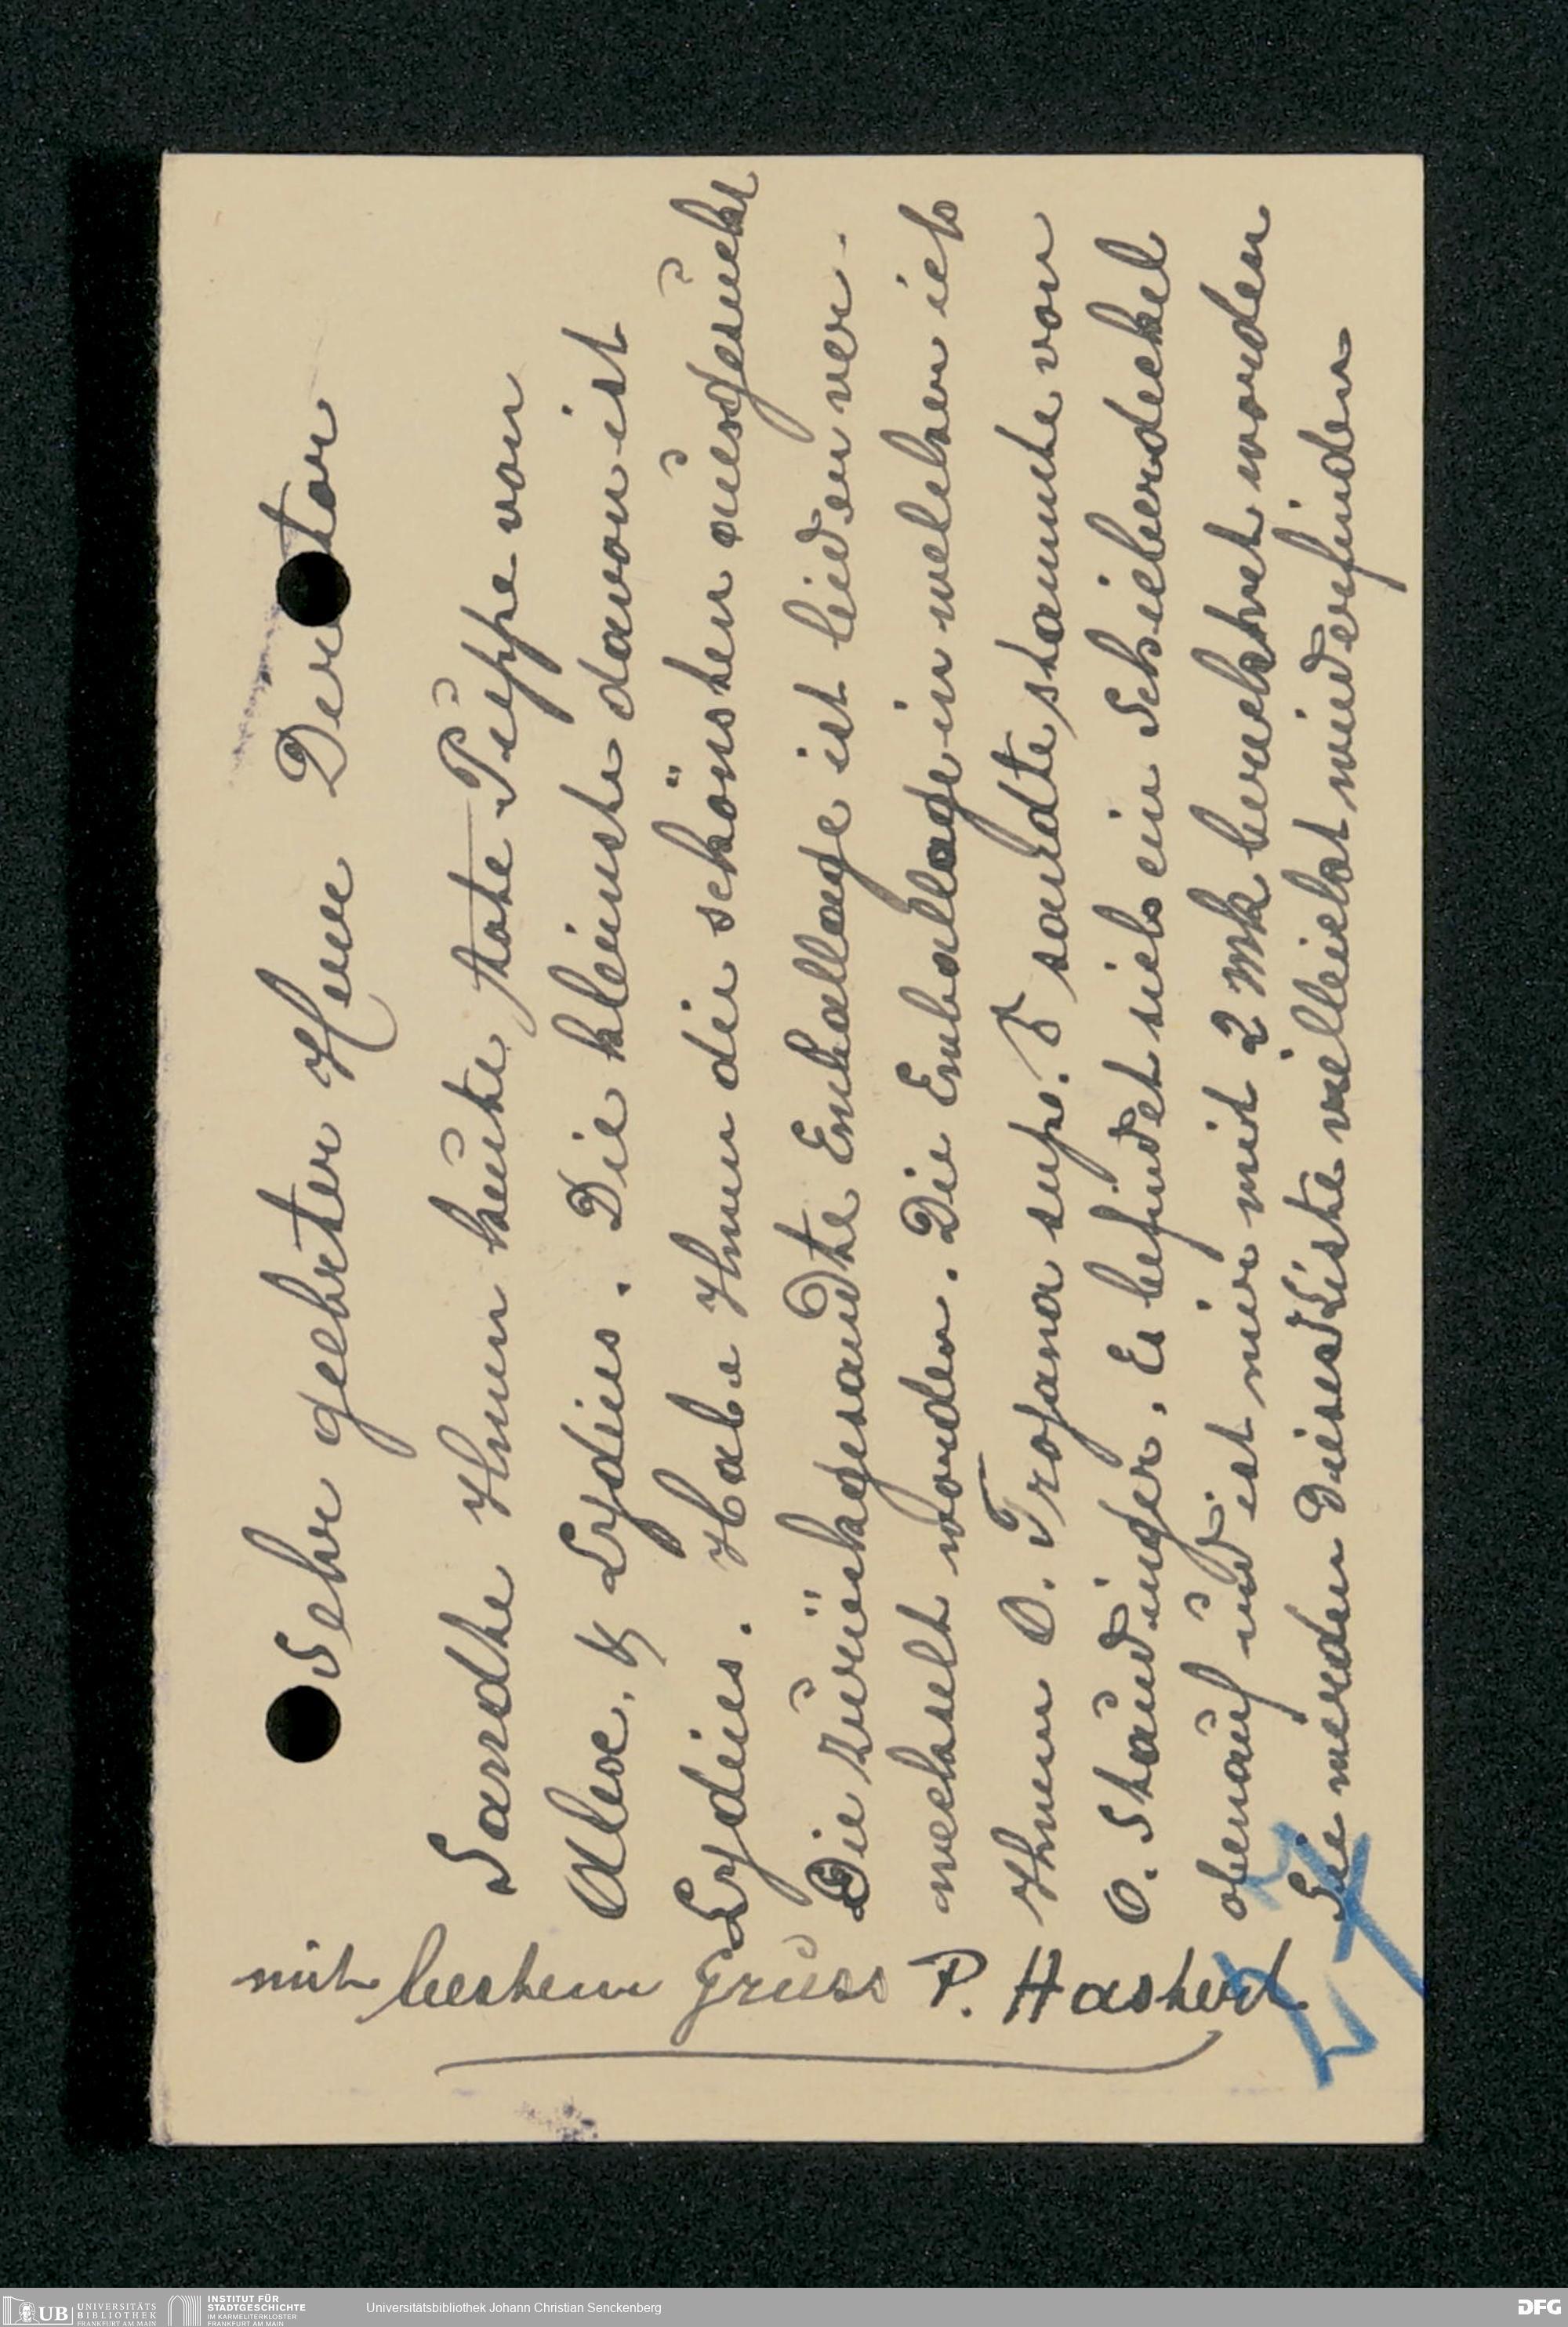 Sehr geehrter Herr Dercktor
Sandte Ihnen heute tote Puppe von
Alex. & Lydius. Die kleinste davon ist
Lydius. Habe Ihnen die schönsten ausgesucht
Die zurückgesandte Emballage ist leider ver-
wechselt worden. Die Emballage in welcher ich
Ihnen O. Trojana sup. ♂ sandte stammte von
O. Staudinger. Es befindet sich ein Schieberdeckel
obenauf und ist mir mit 2 Mk berechnet worden
Sie werden diese Kiste vielleicht wiederfinden
mit bestem Gruss P. Hastert
UB UNIVERSITÄTS BIBLIOTHEK FRANKFURT AM MAIN
INSTITUT FÜR STADTGESCHICHTE IM KARMELITERKLOSTER FRANKFURT AM MAIN
Universitätsbibliothek Johann Christian Senckenberg
DFG